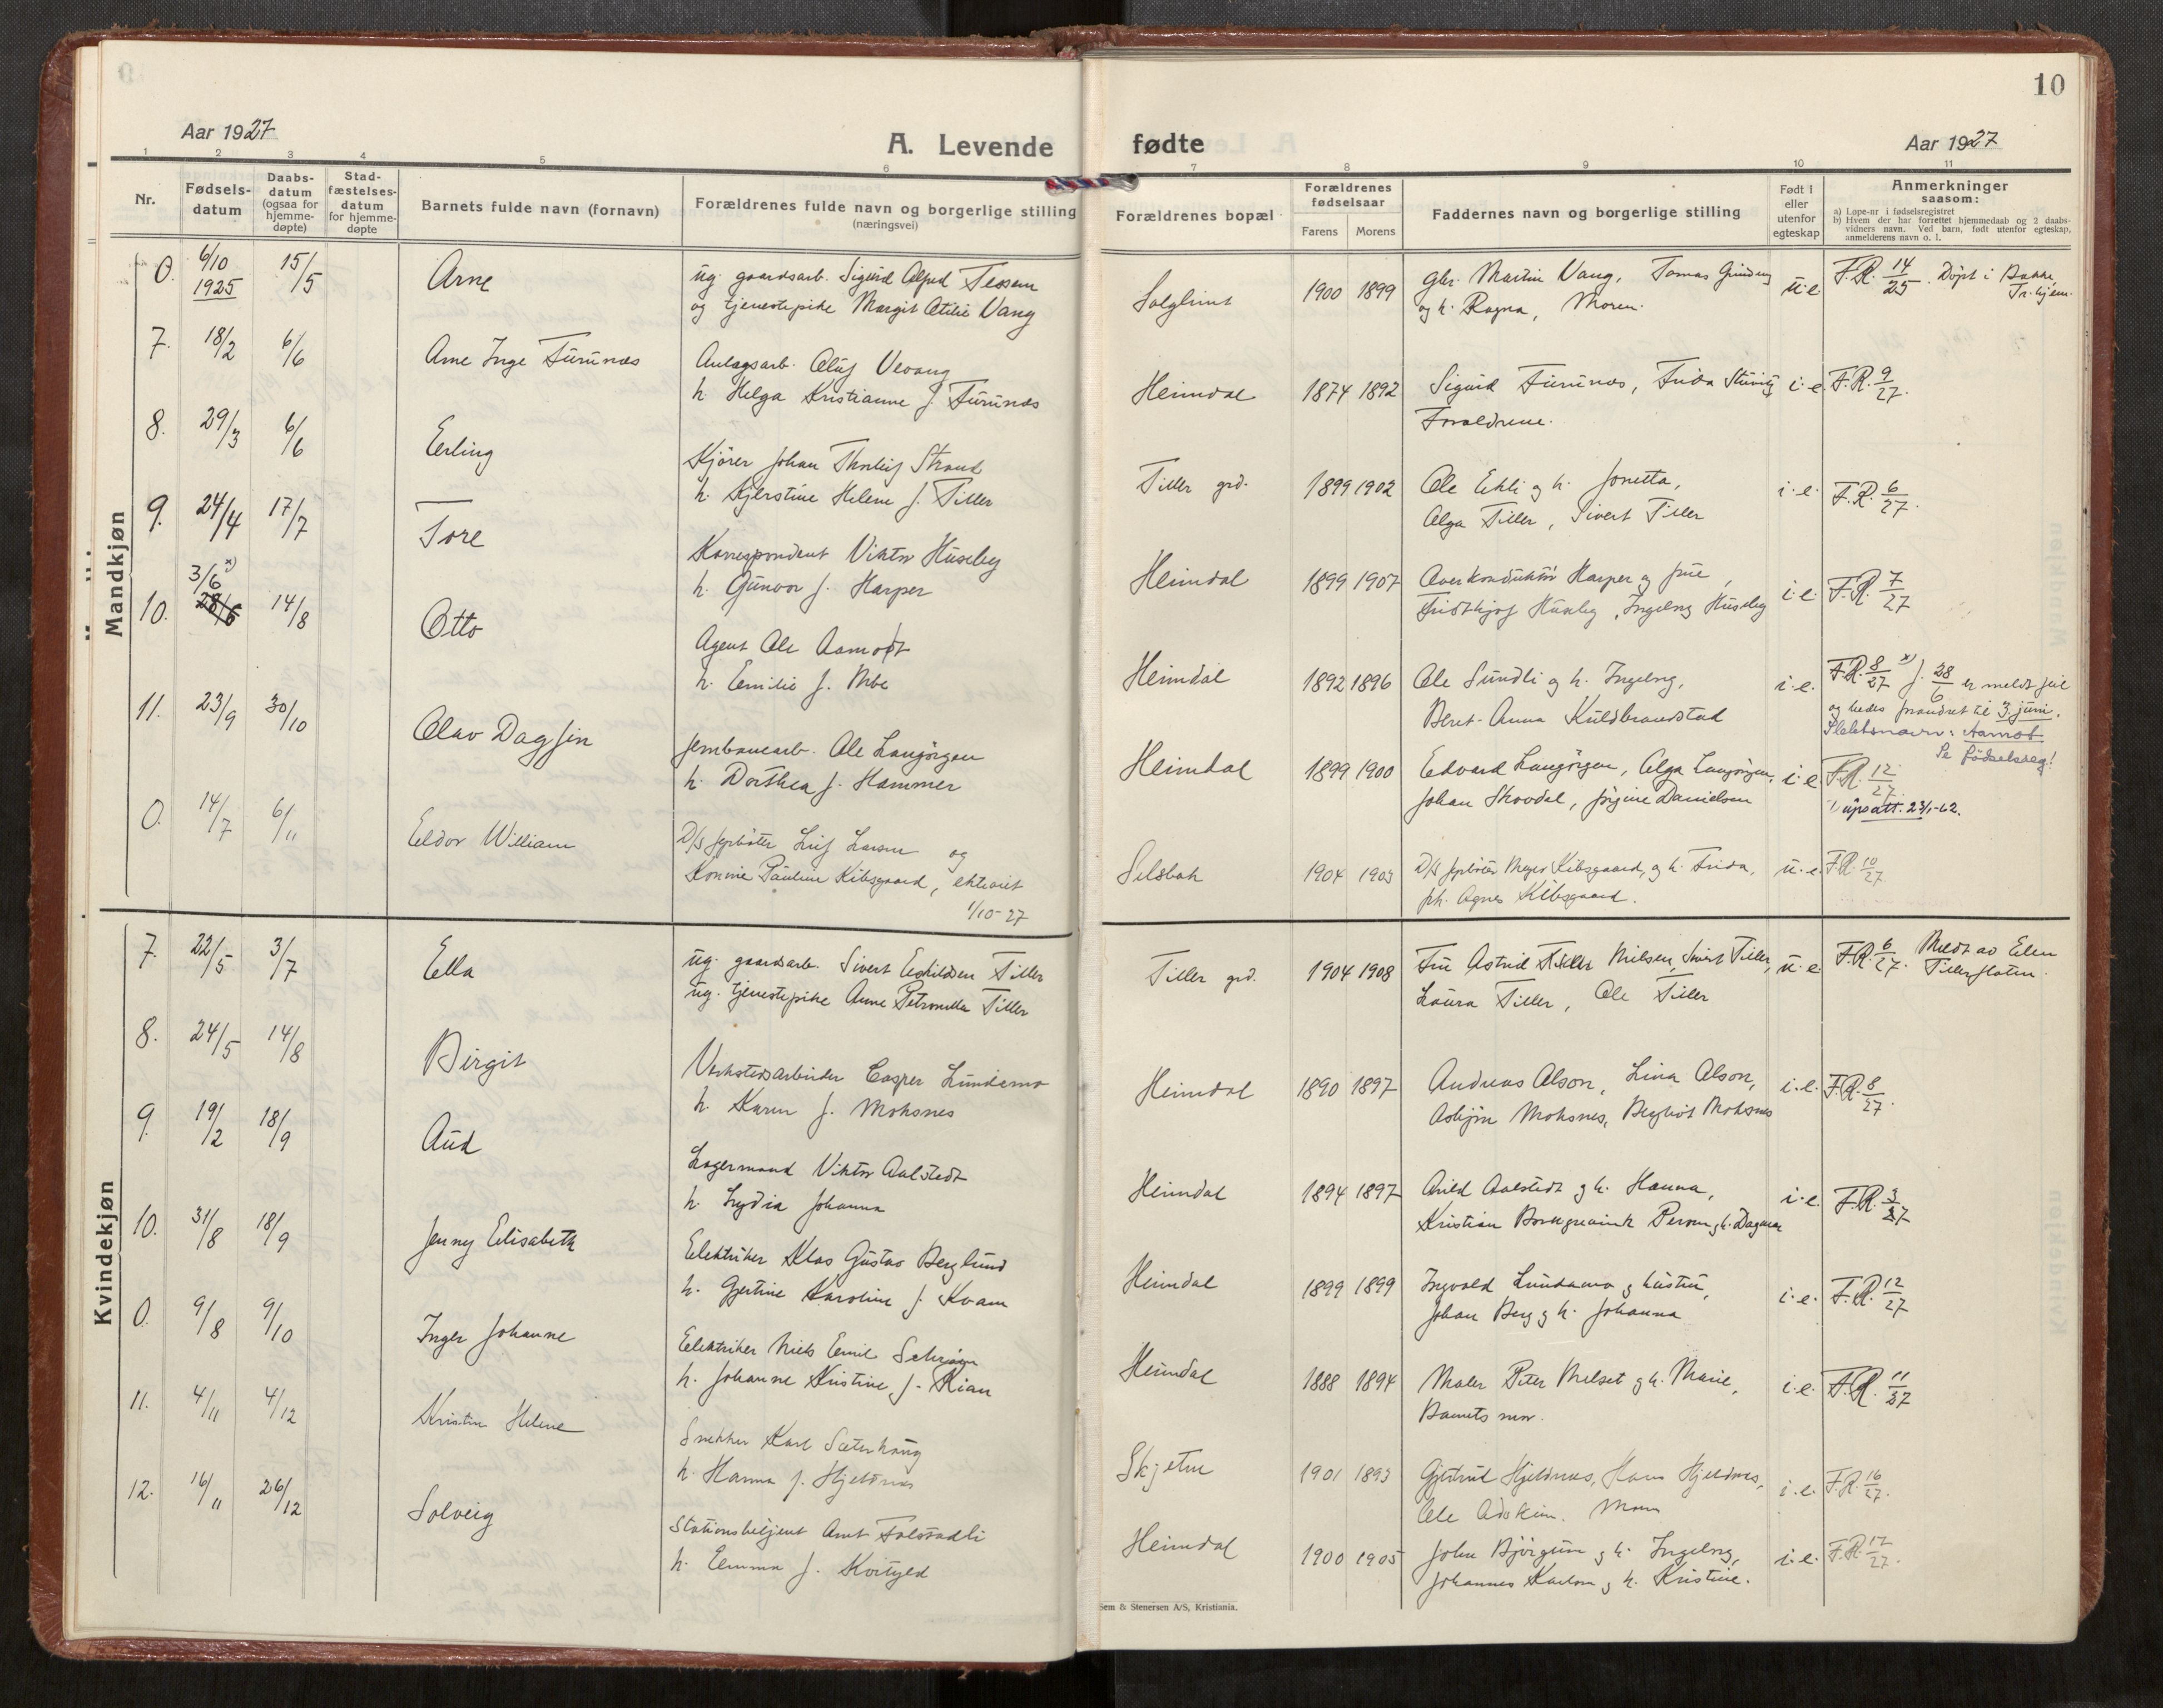 10
Aar 1927
A. Levende
fødte
Aar 1927
1 2 3 4 5 6 7 8 9 10 11
Nr.
Fødsels-
datum
Daabs-
datum
(ogsaa for
hjemme-
døpte)
Stad-
fæstelses-
datum
for hjemme-
døpte
Barnets fulde navn (fornavn)
Forældrenes fulde navn og borgerlige stilling
(næringsvei)
Forældrenes bopæl
Forældrenes
fødselsaar
Farens Morens
Faddernes navn og borgerlige stilling
Født i
eller
utenfor
egteskap
Anmerkninger
saasom:
a) Løpe-nr i fødselsregistret
b) Hvem der har forrettet hjemmedaab og 2 daabs-
vidners navn. Ved barn, født utenfor egteskap,
anmelderens navn o. l.
Mandkjøn
0. 6/10 1925 15/5 Arne
ug. gaardsarb. Sigurd Alfred Tessem
og tjenestepike Margit Otilie Vang
Solglimt 1900 1899
Gbr. Martin Vang, Tomas
og h. Ragna, Moren.
u.e. F.R. 14/25. Døpt i Bakke
Tr.hjem.
7. 18/2 6/6 Arne Inge Furunes
Anlagsarb. Oluf
h. Helga Kristianne f. Furunes
Heimdal 1874 1892
Sigurd Furunes, Frida
Foreldrene.
i.e. F.R. 9/27.
8. 29/3 6/6 Erling
Kjører Johan Thorleif Strand
h. Kjerstine Helene f. Tiller
Tiller grd. 1899 1902
Ole Ekli og h. Jonetta,
Olga Tiller, Sivert Tiller
i.e. F.R. 6/27.
9. 24/4 17/7 Tore
Korrespondent Viktor Huseby
h. Gunvor f. Harper
Heimdal 1899 1907
Overkonduktør Harper og frue,
Fridthjof Huseby, Ingeborg Huseby
i.e. F.R. 7/27
10. 3/6 x) 28/6 14/8 Otto
Agent Ole Aamodt
h. Emilie f. Moe
Heimdal 1892 1896
Ole Sundli og h. Ingeborg,
Beret-Anna Kuldbrandstad
i.e. F.R. 8/27 x) f. 28/6 er meldt feil
og bedes forandret til 3. juni.
Slektsnavn: Aamot
Se fødselsreg!
11. 23/9 30/10 Olav Dagfin
Jernbanearb. Ole Langørgen
h. Dorthea f. Hammer
Heimdal 1899 1900
Edvard Langørgen, Olga Langørgen,
Johan Skovdal, Jørgine Danielsen
i.e. F.R. 12/27.
dupsatt. 23/1-62.
0. 14/7 6/11 Eldor William
D/S fyrbøter Leif Larsen og
Konnie Pauline Kibsgaard, ekteviet
1/10-27
Selsbak 1904 1903
D/S fyrbøter Meyer Kibsgaard, og h. Frida,
frk. Agnes Kibsgaard.
u.e. F.R. 10/27.
Kvindekjøn
7. 22/5 3/7 Ella
ug. gaardsarb. Sivert Eskildsen Tiller
ug. tjenestepike Anne Petronella Tiller
Tiller grd. 1904 1908
Fru Astrid Tiller Nielsen, Sivert Tiller,
Laura Tiller, Ole Tiller
u.e. F.R. 6/27. Meldt av Elen
Tillerflaten.
8. 24/5 14/8 Birgit
Verkstedsarbeider Casper Lundemo
h. Karen f. Moksnes
Heimdal 1890 1897
Andreas Olson, Lina Olson,
Asbjørn Moksnes, Bergliot Moksnes
i.e. F.R. 8/27.
9. 19/2 18/9 Aud
Lagermand Viktor Aalstedt
h. Lydia Johanna
Heimdal 1894 1897
Arild Aalstedt og h. Hanna,
Kristian Borchgrevink Persen og h. Dagmar
i.e. F.R. 3/27
10. 31/8 18/9 Jenny Elisabeth
Elektriker Klas Gustav Berglund
h. Gjertine Karoline f. Kvam
Heimdal 1899 1899
Ingvald Lundamo og hustru,
Johan Berg og h. Johanna
i.e. F.R. 12/27
0. 9/8 9/10 Inger Johanne
Elektriker Niels Emil
h. Johanne Kristine f. Rian
Heimdal 1888 1894
Maler Peter Melset og h. Marie,
Barnets mor.
i.e. F.R. 11/27
11. 4/11 4/12 Kristin Helene
Snekker Karl Sæterhaug
h. Hanna f. Hjeldnes
Skjetne 1901 1893
Gjertrud Hjeldnes, Hans Hjeldnes,
Ole Moren
i.e. F.R. 16/27.
12. 16/11 26/12 Solveig
Stationsbetjent Arnt Folstadli
h. Emma f. Kortgld
Heimdal 1900 1905
John Bjørgum og h. Ingeborg,
Johannes Karlson og h. Kristine.
i.e. F.R. 17/27.
Sem & Stenersen A/S, Kristiania.